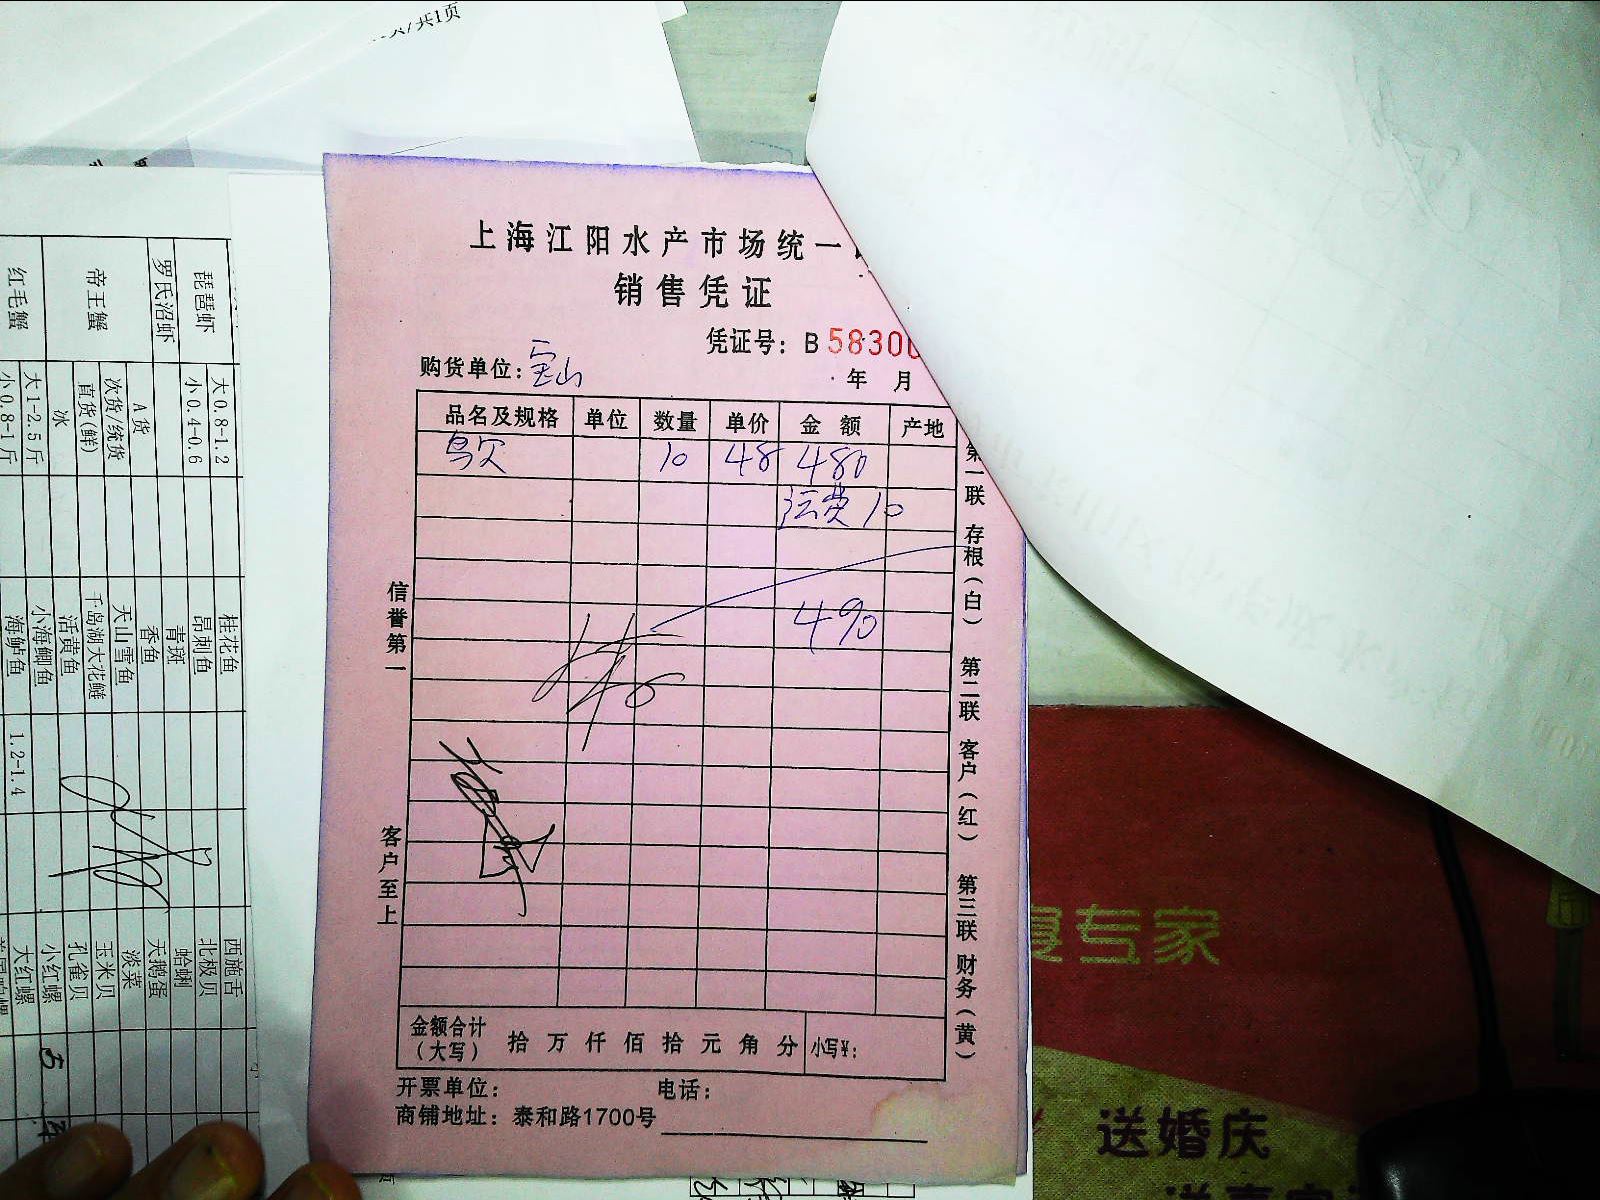 页/共1页
上海江阳水产市场统一
销售凭证
凭证号：B 58300
购货单位：宝山
年 月
品名及规格 单位 数量 单价 金额 产地
鸟欠 10 48 480
运费 10
490
信誉第一
客户至上
第一联 存根（白） 第二联 客户（红） 第三联 财务（黄）
金额合计（大写） 拾 万 仟 佰 拾 元 角 分 小写¥：
开票单位： 电话：
商铺地址：泰和路1700号
琵琶虾 大0.8-1.2
小0.4-0.6
罗氏沼虾
帝王蟹 A货
次货/统货
直货(鲜)
冰
红毛蟹 大1-2.5斤
小0.8-1斤
桂花鱼
昂刺鱼
青斑
香鱼
天山雪鱼
千岛湖大花鲢
活黄鱼
小海鲫鱼
海鲈鱼 1.2-1.4
西施舌
北极贝
蛤蜊
天鹅蛋
淡菜
玉米贝
孔雀贝
小红螺
大红螺
专家
送婚庆